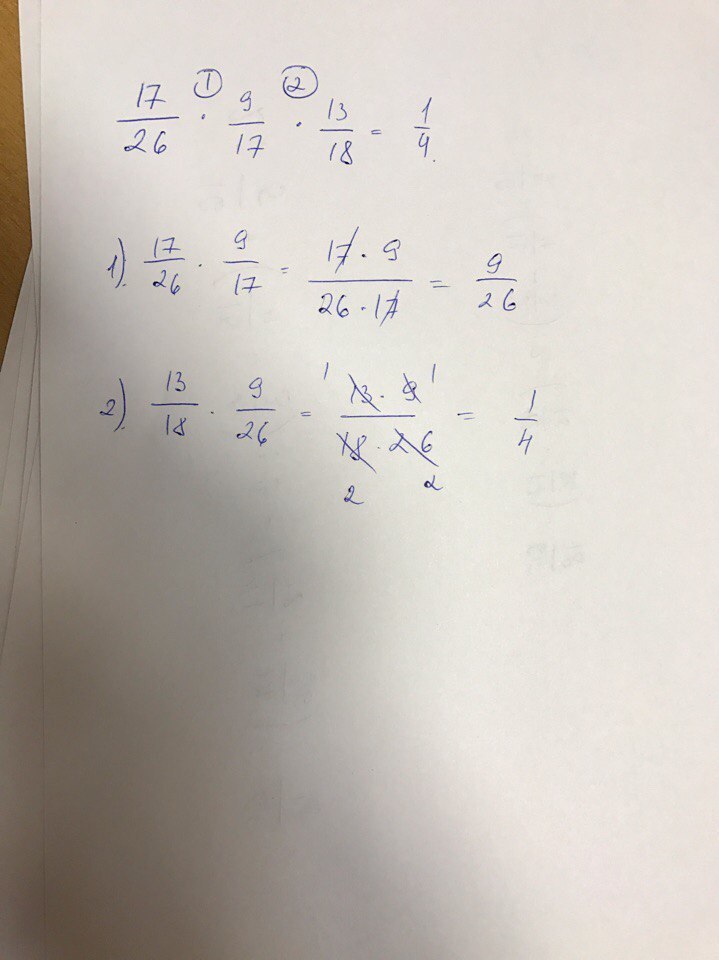 17/26 ① · 9/17 ② · 13/18 = 1/4.
1). 17/26 · 9/17 = 17 · 9 / 26 · 17 = 9/26
2). 13/18 · 9/26 = 1 13 · 9 1 / 18 · 26 = 1/4
2 2